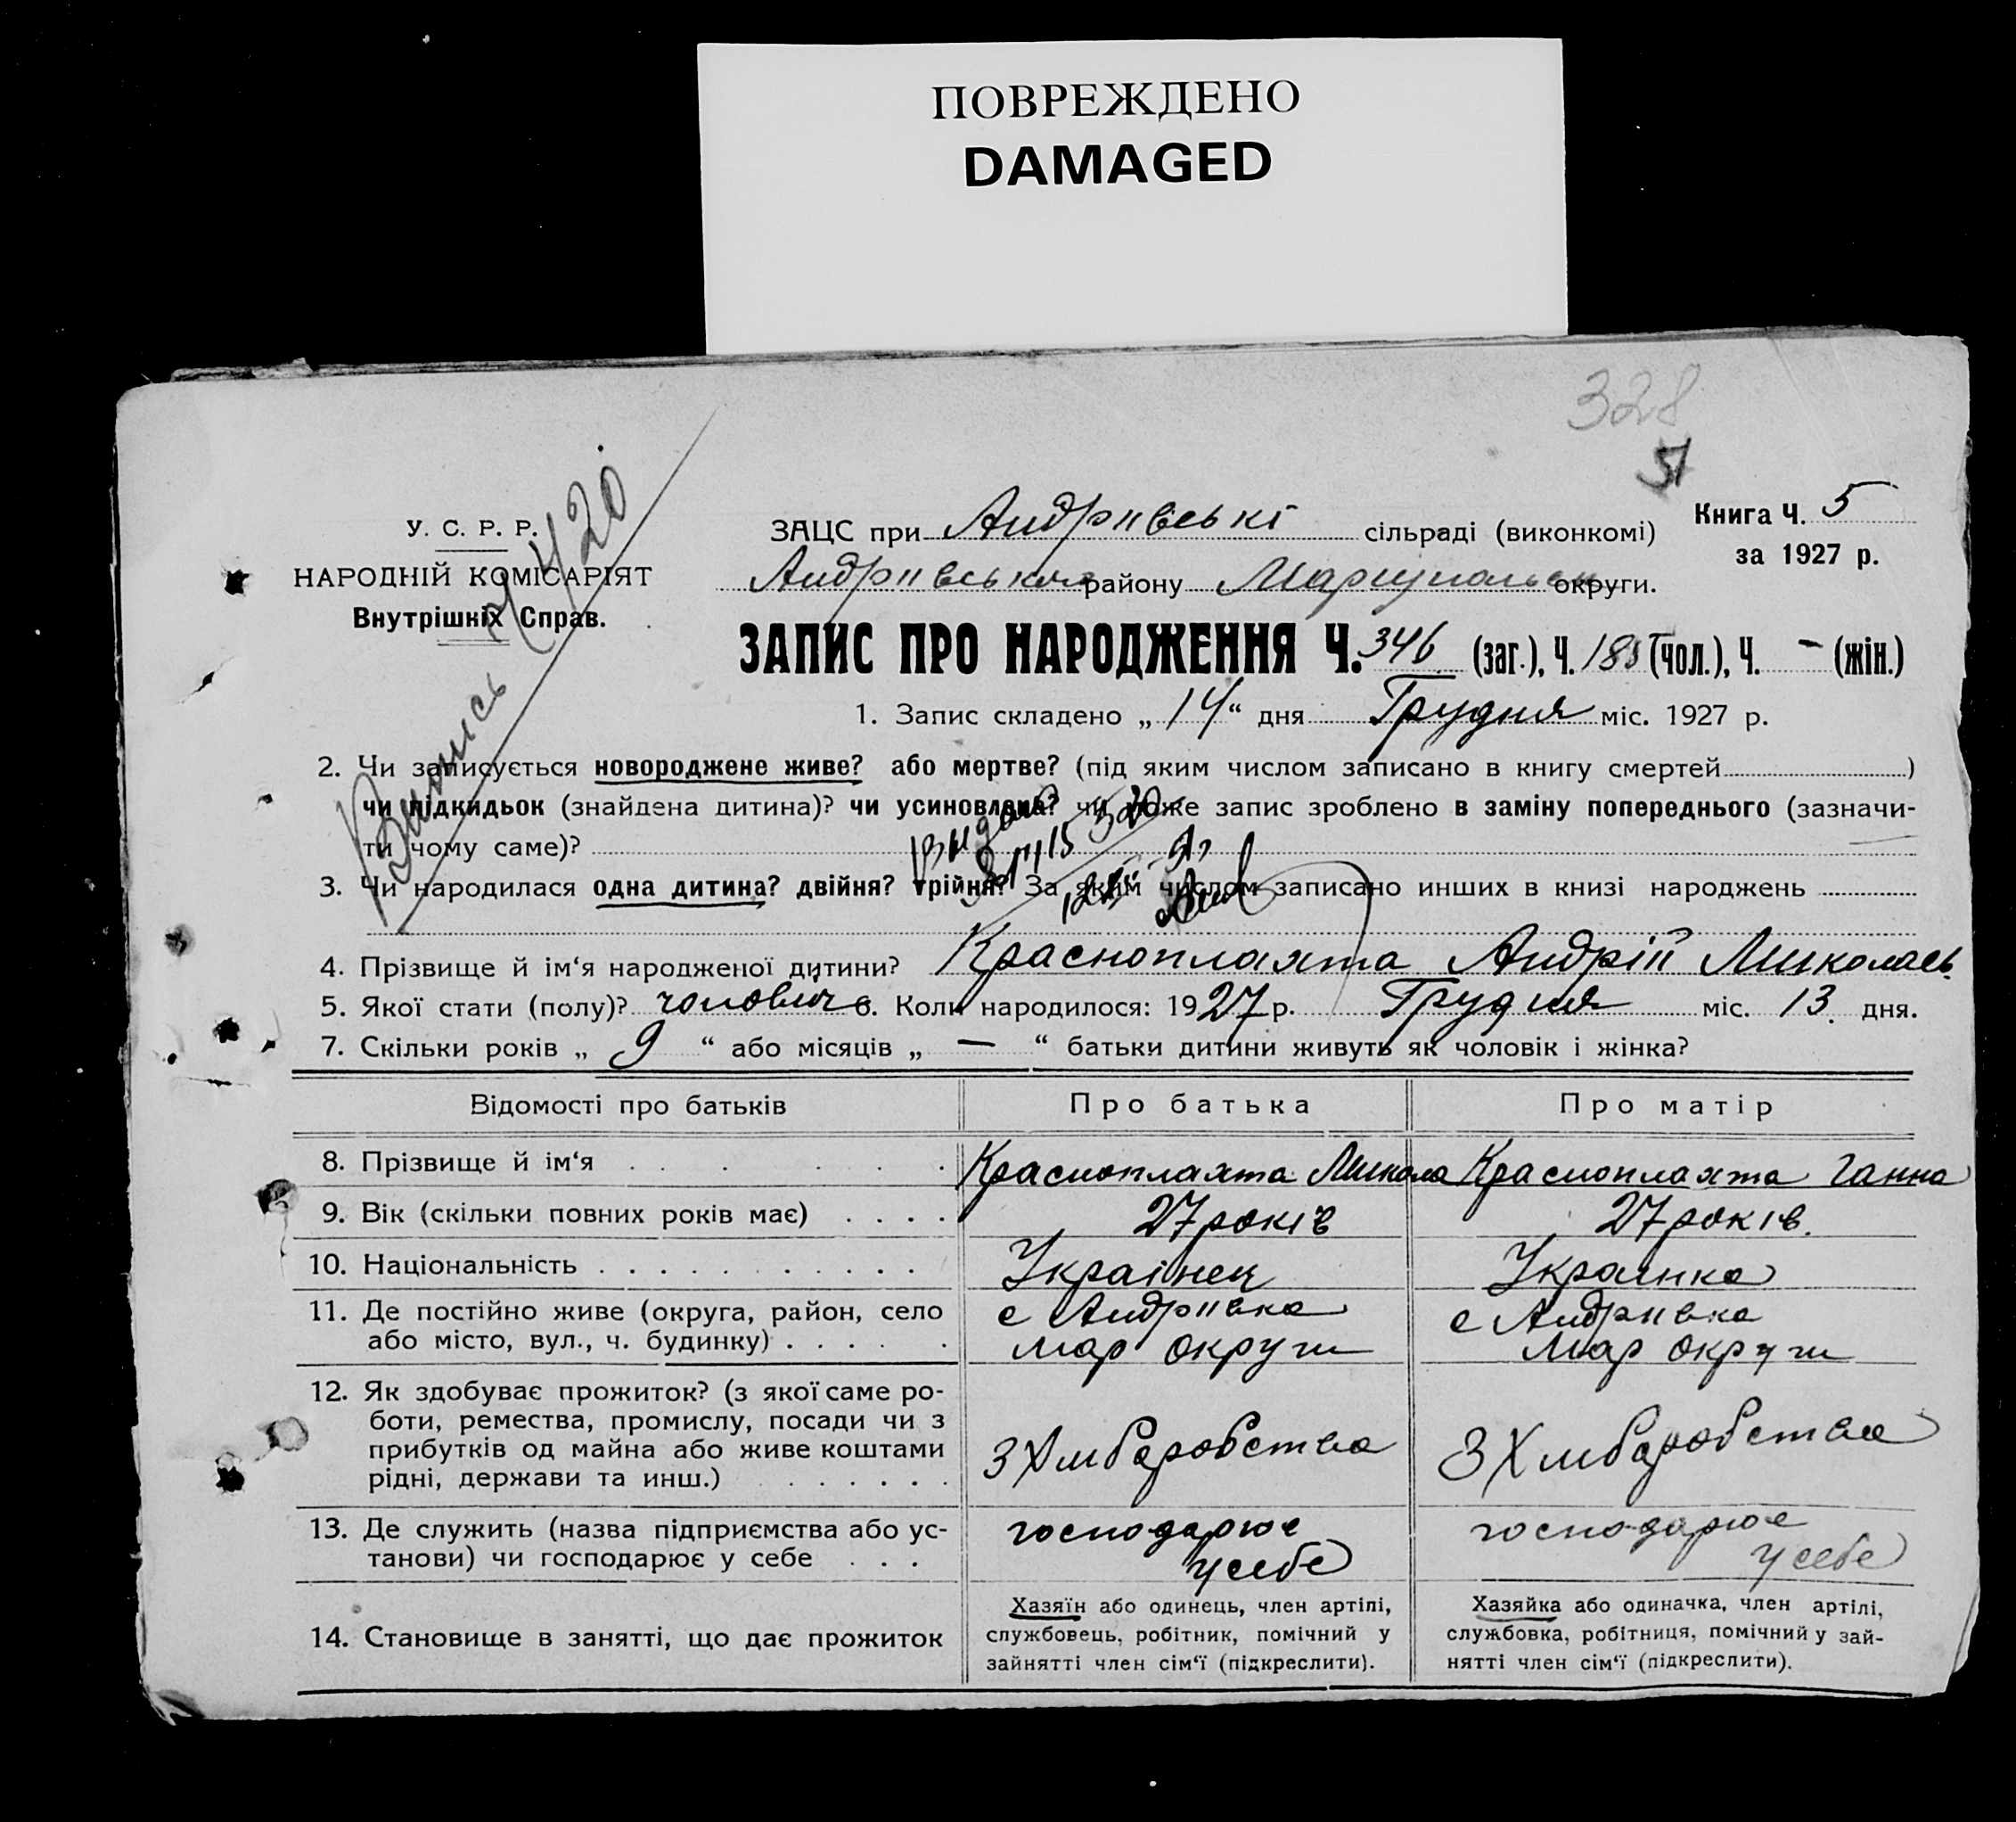 ПОВРЕЖДЕНО
DAMAGED
328
51
У. С. Р. Р.
НАРОДНІЙ КОМІСАРІЯТ
Внутрішніх Справ.
420
ЗАЦС при Андріівські сільраді (виконкомі)
Книга Ч. 5
за 1927 р.
району округи.
ЗАПИС ПРО НАРОДЖЕННЯ Ч. 346 (заг.), Ч. (чол.), Ч. – (жін.)
1. Запис складено „ 14 “ дня Грудня міс. 1927 р.
2. Чи записується новороджене живе? або мертве? (під яким числом записано в книгу смертей )
чи підкидьок (знайдена дитина)? чи усиновлена? чи може запис зроблено в заміну попереднього (зазначи-
ти чому саме)?
3. Чи народилася одна дитина? двійня? трійня? За яким числом записано инших в книзі народжень
4. Прізвище й ім‘я народженої дитини? Красноплахта Андрій Миколаєв.
5. Якої стати (полу)? чоловіч 6. Коли народилося: 1927 р. Грудня міс. 13. дня.
7. Скільки років „ 9 “ або місяців „ — “ батьки дитини живуть як чоловік і жінка?
Відомості про батьків Про батька Про матір
8. Прізвище й ім‘я Красноплахта Микола Красноплахта Ганна
9. Вік (скільки повних років має) 27 років 27 років.
10. Національність Украінец Украинка
11. Де постійно живе (округа, район, село с Андріівка с Андріівка
або місто, вул., ч. будинку) Мар округи Мар округи
12. Як здобуває прожиток? (з якої саме ро-
боти, ремества, промислу, посади чи з
прибутків од майна або живе коштами З Хлиборобства З Хлиборобства
рідні, держави та инш.)
13. Де служить (назва підприємства або ус- господарює господарює
танови) чи господарює у себе у себе у себе
14. Становище в занятті, що дає прожиток
Хазяїн або одинець, член артілі,
службовець, робітник, помічний у
зайнятті член сім‘ї (підкреслити).
Хазяйка або одиначка, член артілі,
службовка, робітниця, помічний у зай-
нятті член сім‘ї (підкреслити).